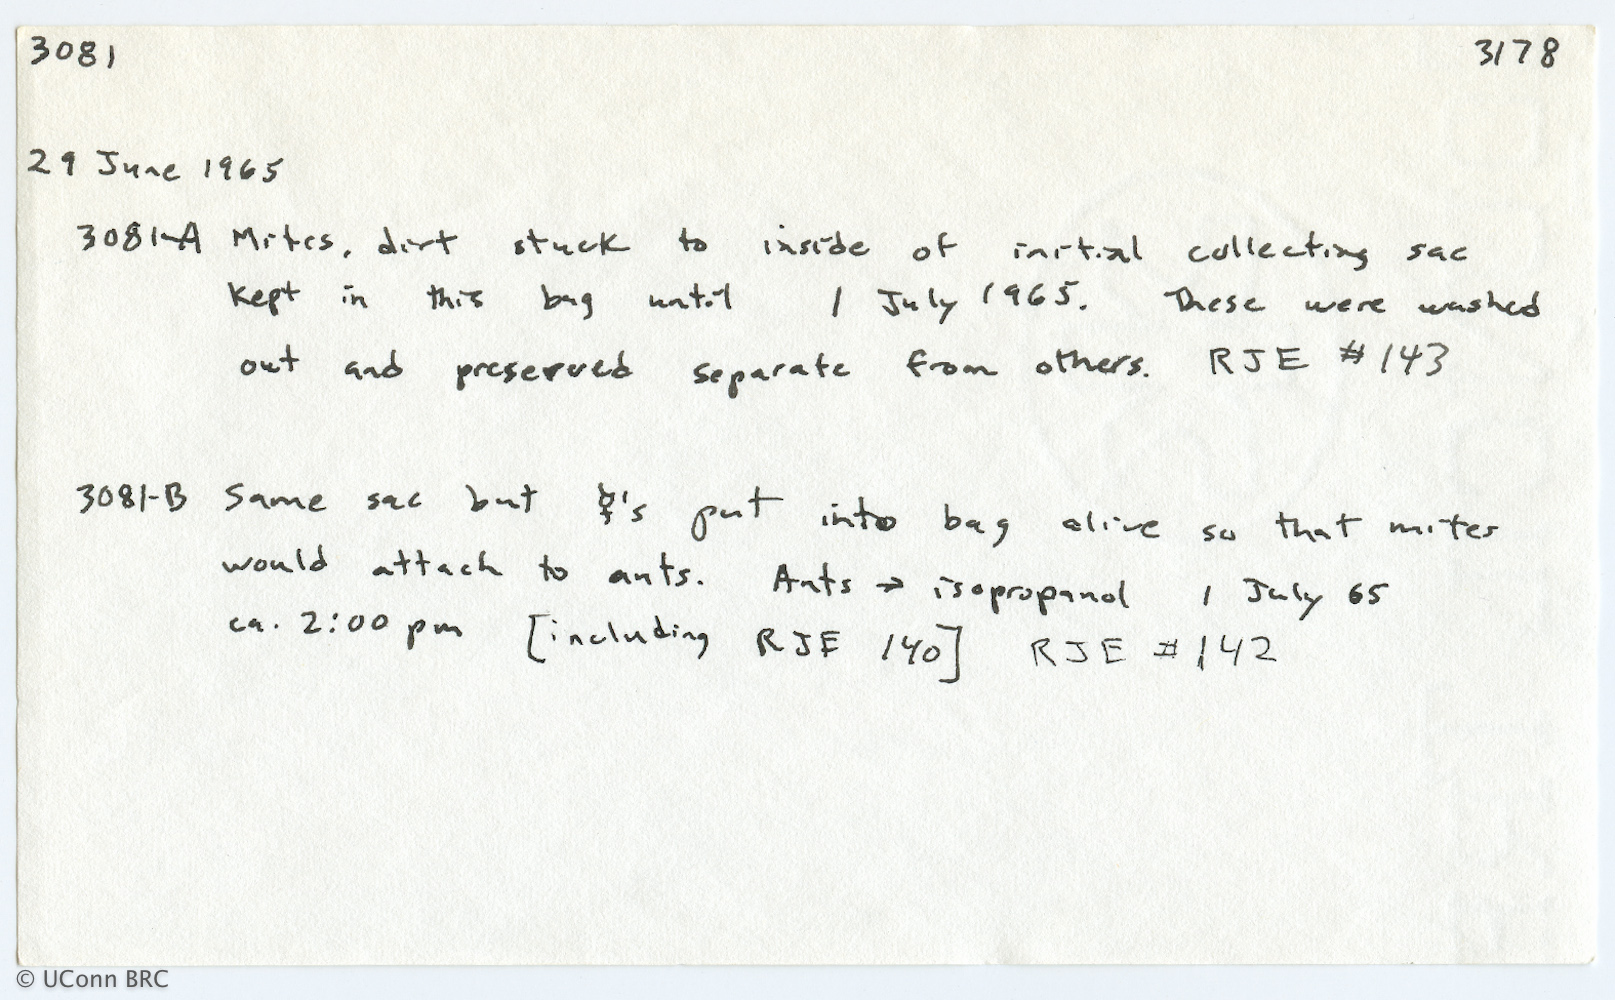 3081 3178
29 June 1965
3081-A Mites, dirt stuck to inside of initial collecting sac
kept in this bag until 1 July 1965. These were washed
out and preserved separate from others. RJE #143
3081-B Same sac but ☿'s put into bag alive so that mites
would attach to ants. Ants → isopropanol 1 July 65
ca. 2:00 pm [including RJE 140] RJE #142
© UConn BRC